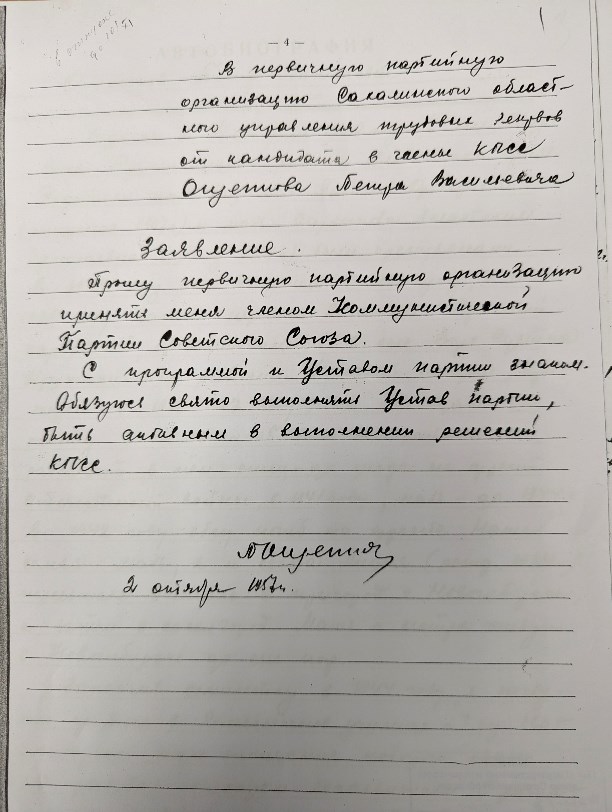 - 4 -
В первичную партийную
организацию Сахалинского област-
ного управления трудовых резервов
от кандидата в члены КПСС
Ощепкова Петра Васильевича
Заявление.
Прошу первичную партийную организацию
принять меня членом Коммунистической
Партии Советского Союза.
С программой и Уставом партии знаком.
Обязуюсь свято выполнять Устав партии,
быть активным в выполнении решений
КПСС.
2 октября 1957г.